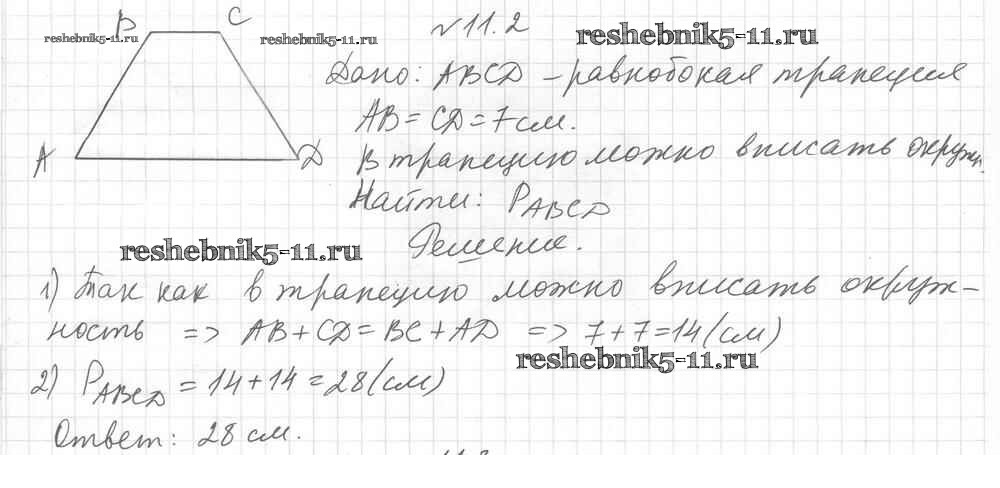 B C
№ 11.2
reshebnik5-11.ru reshebnik5-11.ru reshebnik5-11.ru
Дано: ABCD – равнобокая трапеция
AB = CD = 7 см.
A D В трапецию можно вписать окружн.
Найти: P_ABCD
reshebnik5-11.ru Решение.
1) Так как в трапецию можно вписать окруж-
ность => AB + CD = BC + AD => 7 + 7 = 14 (см)
reshebnik5-11.ru
2) P_ABCD = 14 + 14 = 28 (см)
Ответ: 28 см.